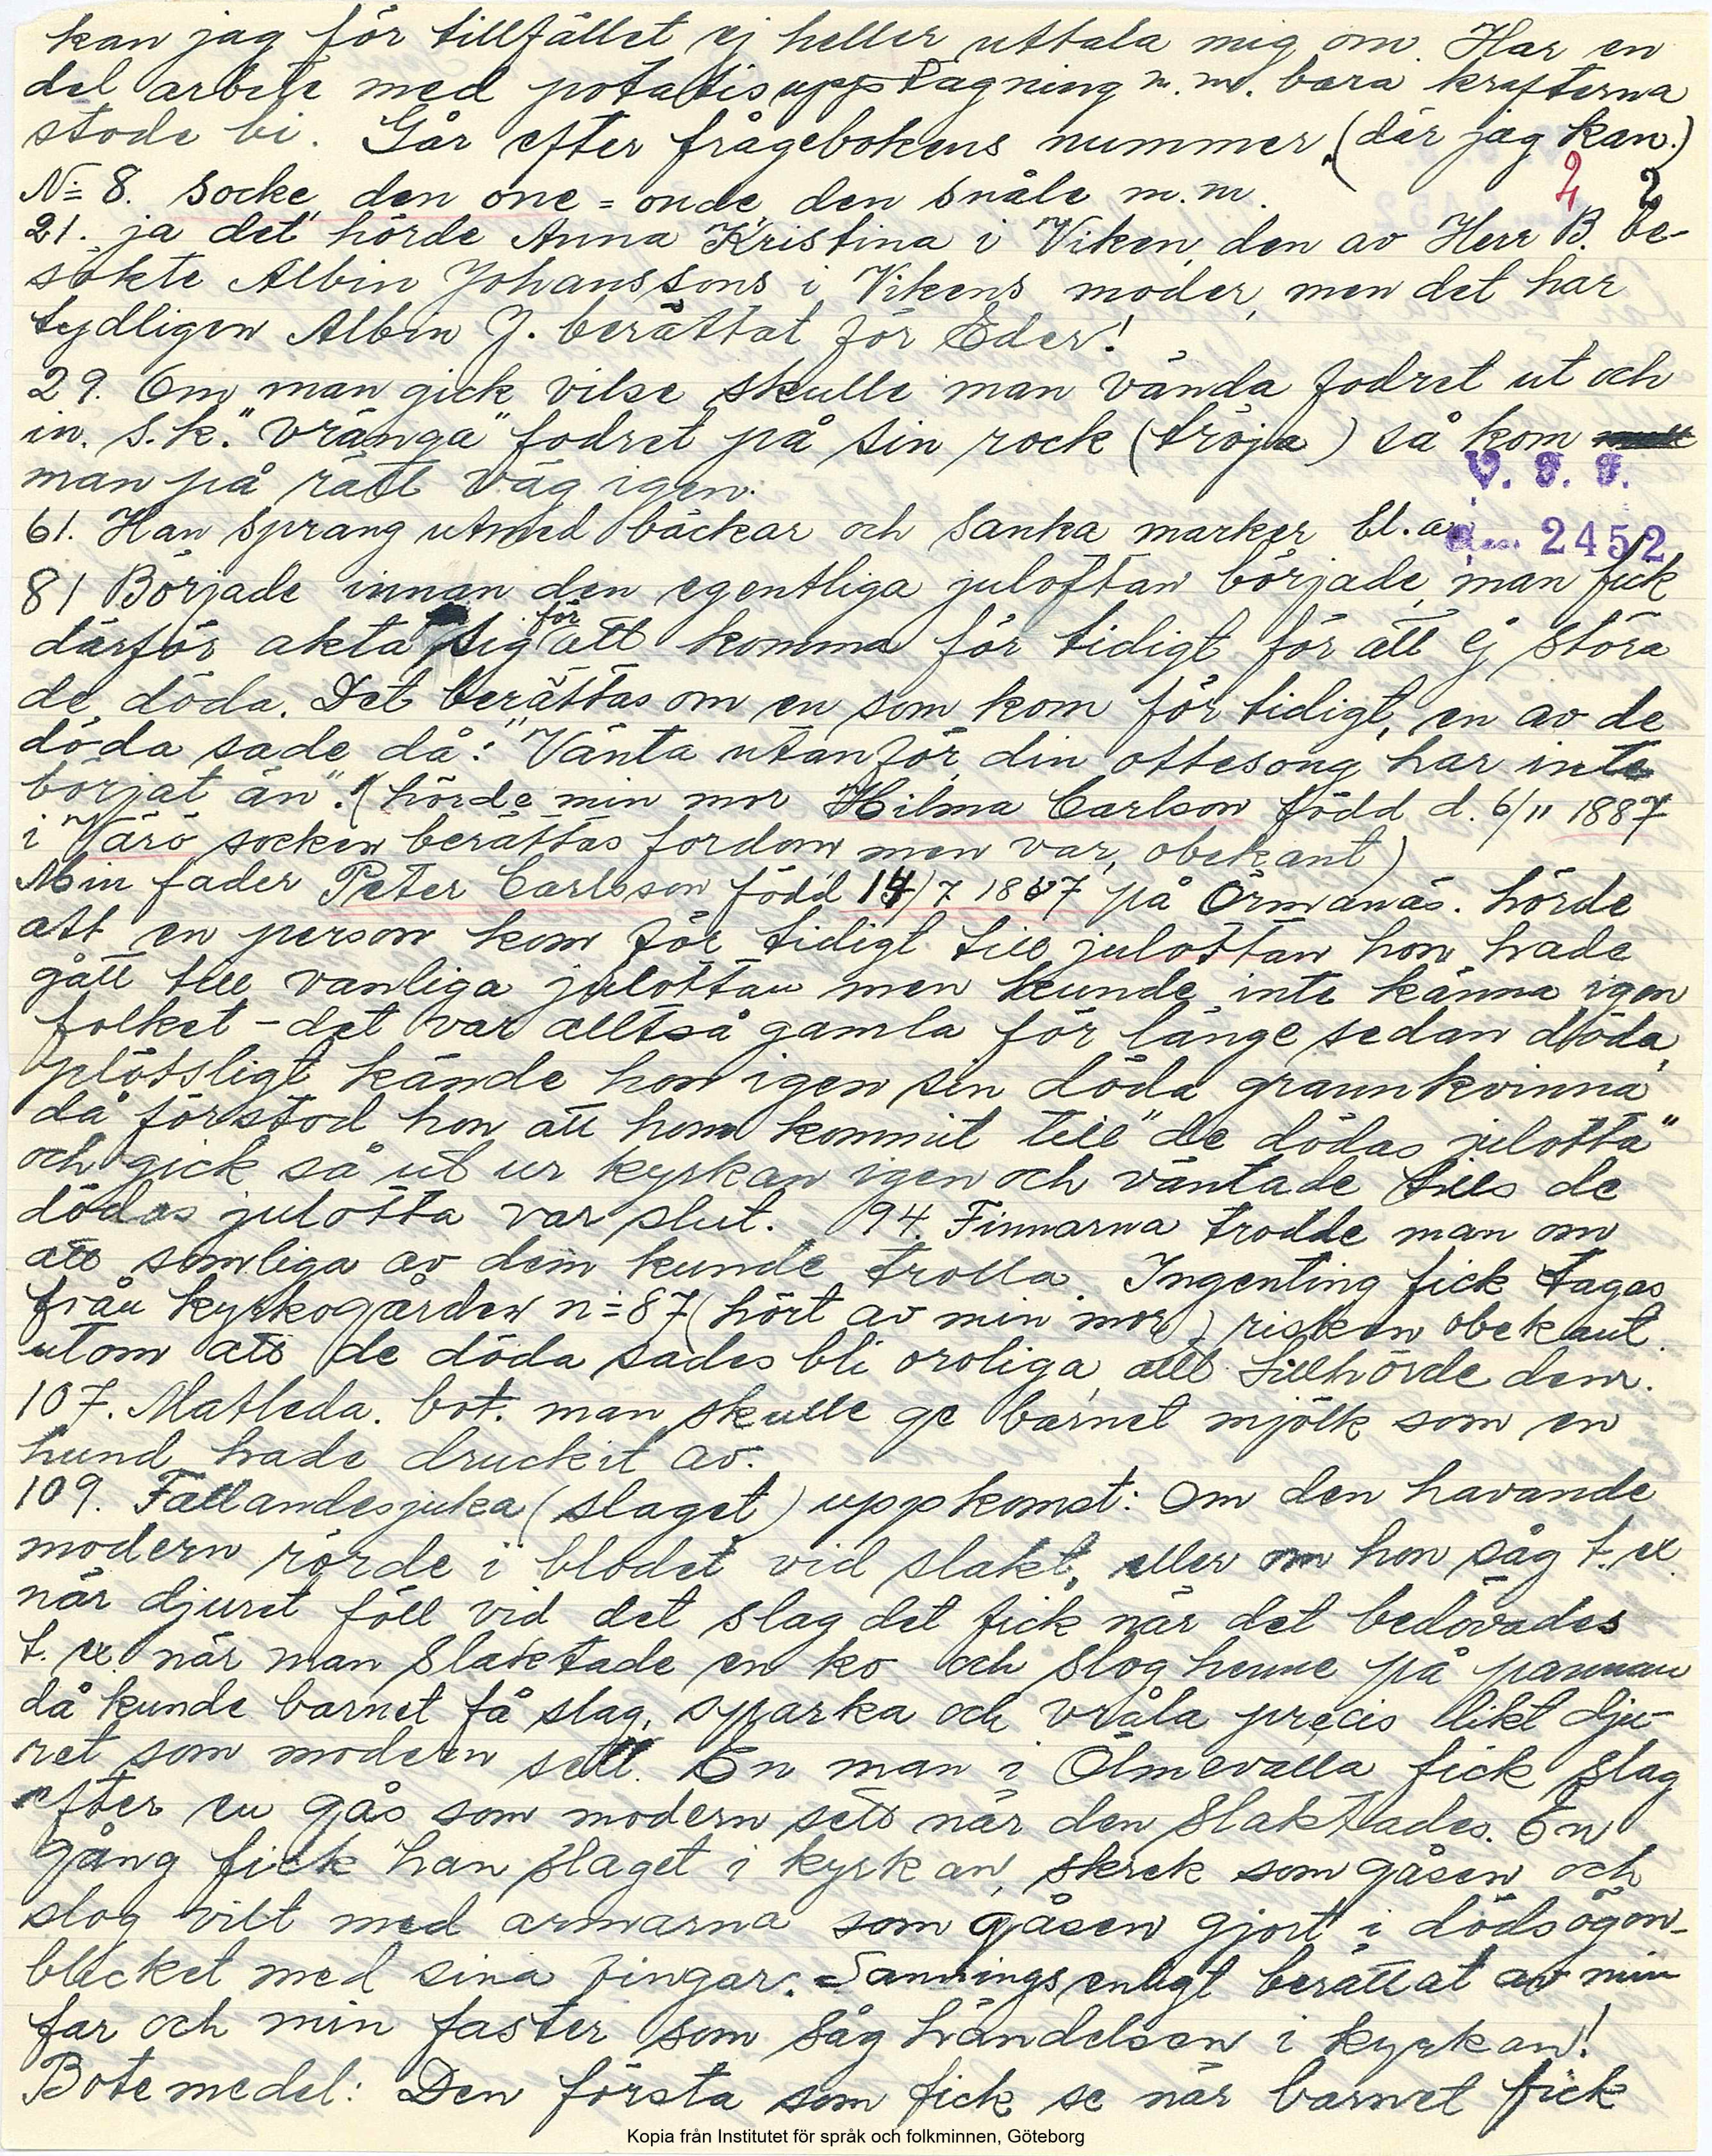 kan jag för tillfället ej heller uttala mig om. Har en
del arbete med potatisupptagning m.m. bara krafterna
stode bi. Går efter frågebokens nummer (där jag kan.)
2 2
N= 8. Socke, den one = onde den snåle m.m.
21. ja det hörde Anna Kristina i Viken, den av Herr B. be-
sökte Albin Johanssons i Vikens moder, men det har
tydligen Albin J. berättat för Eder!
29. Om man gick vilse skulle man vända fodret ut och
in. s.k. "vränga" fodret på sin rock (tröja) så kom
man på rätt väg igen.
V. F. F.
61. Han sprang utmed bäckar och sanka marker bl. a.
2452
81 Började innan den egentliga julottan började, man fick
därför akta sig för att komma för tidigt för att ej störa
de döda. Det berättas om en som kom för tidigt, en av de
döda sade då: "Vänta utanför, din ottesong har inte
börjat än". (hörde min mor Hilma Carlson född d. 6/11 1887
i Värö socken berättas fordom, men var, obekant)
Min fader Peter Carlsson född 14/7 1887 på Örmanäs. hörde
att en person kom för tidigt till julottan hon hade
gått till vanliga julottan men kunde inte känna igen
folket - det var alltså gamla för länge sedan döda,
plötsligt kände hon igen sin döda grannkvinna
då förstod hon att hon kommit till "de dödas julotta"
och gick så ut ur kyrkan igen och väntade tills de
dödas julotta var slut. 94. Finnarna trodde man om
att somliga av dem kunde trolla. Ingenting fick tagas
från kyrkogården n=87 (hört av min mor) risken obekant.
utom att de döda sades bli oroliga, allt tillhörde dem.
107. Matleda. bot. man skulle ge barnet mjölk som en
hund hade druckit av.
109. Fallandesjuka (slaget) uppkomst: Om den havande
modern rörde i blodet vid slakt, eller om hon såg t. ex.
när djuret föll vid det slag det fick när det bedövades
t. ex. när man slaktade en ko och slog henne på pannan
då kunde barnet få slag, sparka och vråla precis likt dju-
ret som modern sett. En man i Ölmevalla fick slag
efter en gås som modern sett när den slaktades. En
gång fick han slaget i kyrkan, skrek som gåsen och
slog vilt med armarna som gåsen gjort i dödsögon-
blicket med sina vingar. Sanningsenligt berättat av min
far och min faster som såg händelsen i kyrkan!
Botemedel: Den första som fick se när barnet fick
Kopia från Institutet för språk och folkminnen, Göteborg